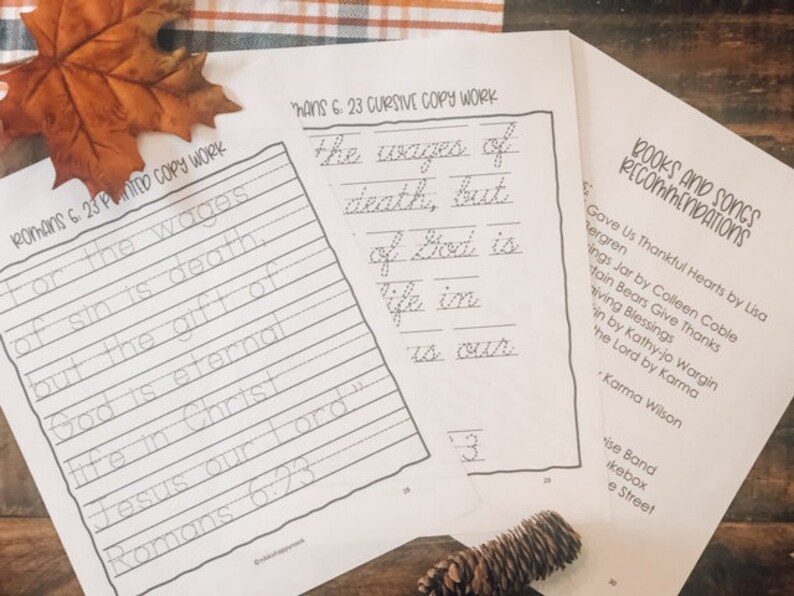 ROMANS 6: 23 PRINTED COPY WORK
For the wages
of sin is death,
but the gift of
God is eternal
life in Christ
Jesus our Lord."
Romans 6:23
28
6: 23 CURSIVE COPY WORK
the wages of
death, but
of God is
life in
is our
29
BOOKS AND SONGS
RECOMMENDATIONS
Gave Us Thankful Hearts by Lisa
Bergren
Jar by Colleen Coble
Bears Give Thanks
Blessings
by Kathy-jo Wargin
the Lord by Karma
Karma Wilson
Band
Street
30